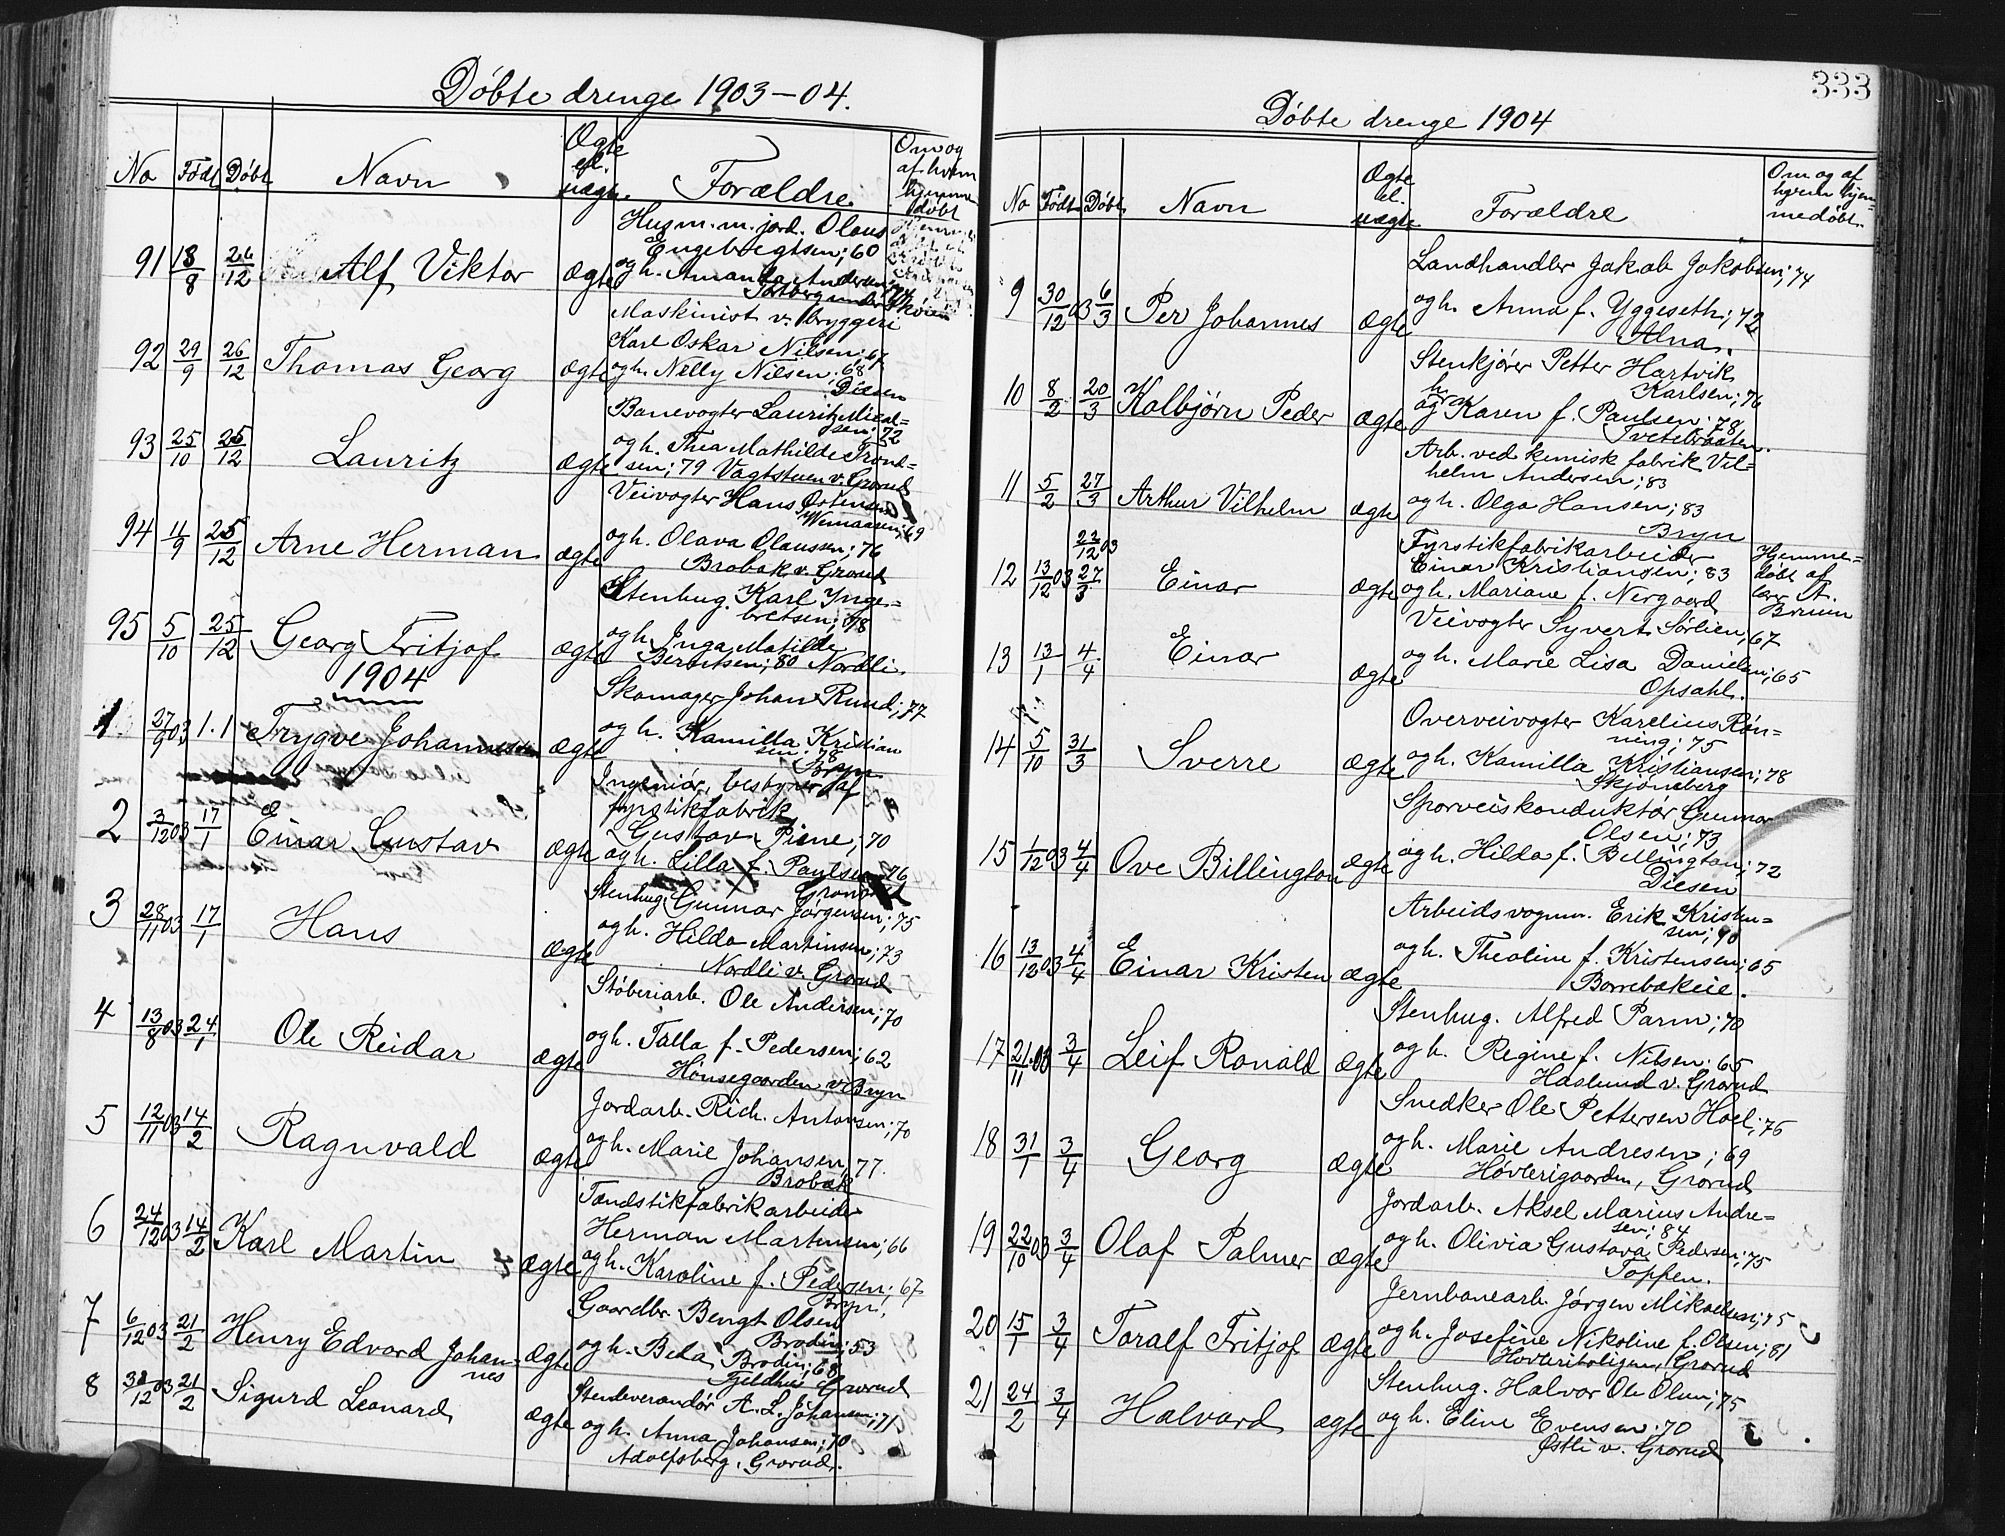 Døbte drenge 1903-04.
No Født Døbt Navn Ægte el. uægte. Forældre. Om og af hvem hjemmedøbt
91 18/8 26/12 Alf Viktor ægte Husm. m. jord. Olaus
Engebregtsen; 60
og h. Amanda Andersen
92 29/9 26/12 Thomas Georg ægte Maskinist v. bryggeri
Karl Oskar Nilsen; 67
og h. Nelly Nilsen; 68
Diesen
93 25/10 25/12 Lauritz ægte Banevogter Lauritz Mikal=
sen; 72
og h. Thea Mathilde Trond=
sen; 79 Vagtstuen v. Grorud
94 11/9 25/12 Arne Herman ægte Veivogter Hans Østensen
Wemaasen; 69
og h. Olava Olaussen; 76
Brobak v. Grorud
95 5/10 25/12 Georg Fritjof ægte Stenhug. Karl Inge=
bretsen; 78
og h. Inga Matilde
Berntsen; 80 Nordli
1904
1 27/9 03 1.1 Trygve Johannes ægte Skomager Johan Rund; 77
og h. Kamilla Kristian
sen; 78
Bryn
2 3/12 03 17/1 Einar Gustav ægte Ingeniør, bestyrer af
fyrstikfabrik
Gustav Pine; 70
og h. Lilla f. Paulsen 76
Grorud
3 28/11 03 17/1 Hans ægte Stenhug. Gunnar Jørgensen; 75
og h. Hilda Martinsen; 73
Nordli v. Grorud
4 13/8 03 24/1 Ole Reidar ægte Støberiarb. Ole Andersen; 70
og h. Talla f. Pedersen; 62
Hønsegaarden v. Bryn
5 12/11 03 14/2 Ragnvald ægte Jordarb. Rich. Antonsen; 70
og h. Marie Johansen, 77.
Brobæk
6 24/12 03 14/2 Karl Martin ægte Tændstikfabrikarbeider
Herman Martinsen; 66
og h. Karoline f. Pedersen; 67
Bryn;
7 6/12 03 21/2 Henry Edvard Johan-
nes ægte Gaardbr. Bengt Olsen
Brodin; 53
og h. Beda Brodin; 68
Fjeldhus Grorud
8 31/12 03 21/2 Sigurd Leonard ægte Stenleverandør A. L. Johansen; 71
og h. Anna Johansen; 70
Adolfsberg, Grorud.
333
Døbte drenge 1904
No Født Døbt Navn Ægte el. uægte Forældre Om og af hvem hjem=medøbt.
9 30/12 03 6/3 Per Johannes ægte Landhandler Jakob Jakobsen; 74
og h. Anna f. Yggeseth; 72
Alna.
10 8/2 20/3 Kolbjørn Peder ægte Stenkjører Petter Hartvik
Karlsen; 76
og h. Karen f. Paulsen; 78,
Tvetebraaten.
11 5/2 27/3 Arthur Vilhelm ægte Arb. ved kemisk fabrik Vil=
helm Andersen; 83
og h. Olga Hansen; 83
Bryn
12 13/12 03 23/12 03 27/3 Einar ægte Fyrstikfabrikarbeider
Einar Kristiansen; 83
og h. Mariane f. Nergaard
Hjemme=
døbt af
lær A.
Bruun
13 13/1 4/4 Einar ægte Veivogter Syvert Sørlien, 67
og h. Marie Lisa Danielsen; 65
Opsahl.
14 5/10 31/3 Sverre ægte Overveivogter Karelius Røn=
ning; 75
og h. Kamilla Kristiansen; 78
Skjønsberg
15 1/12 03 4/4 Ove Billington ægte Sporveiskonduktør Gunnar
Olsen; 73
og h. Hilda f. Billington; 72
Diesen
16 13/12 03 4/4 Einar Kristen ægte Arbeidsvognm. Erik Kristen=
sen; 70
og h. Theoline f. Kristensen; 65
Borrebækeie.
17 21/11 03 3/4 Leif Ronald ægte Stenhug. Alfred Parm; 70
og h. Regine f. Nilsen; 65
Haslund v. Grorud
18 31/1 3/4 Georg ægte Snedker Ole Pettersen Hoel; 76
og h. Marie Andresen; 69
Høvlerigaarden, Grorud
19 22/10 03 3/4 Olaf Palmer ægte Jordarb. Aksel Marius Andre=
sen; 84
og h. Olivia Gustava Pedersen; 75
Toppen.
20 15/1 3/4 Toralf Fritjof ægte Jernbanearb. Jørgen Mikaelsen; 75
og h. Josefine Nikoline f. Olsen; 81
Høvleriboligen, Grorud
21 24/2 3/4 Halvard ægte Stenhug. Halvor Ole Olsen; 75
og h. Eline Evensen; 70
Østli v. Grorud